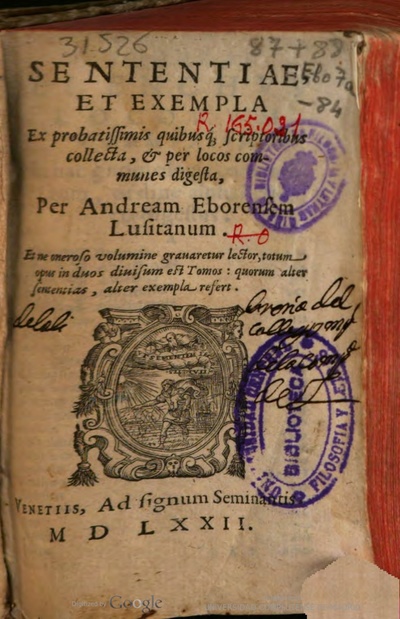 31.526
87+88
SENTENTIAE,
ET EXEMPLA
-84
R 165.081
Ex probatissimis quibusq́; scriptoribus
collecta, & per locos com-
munes digesta,
Per Andream Eborensem
Lusitanum.
R.O
Et ne oneroso volumine grauaretur lector, totum
opus in duos diuisum est Tomos: quorum alter
sententias, alter exempla refert.
BIBLIOTECA
FILOSOFIA Y LET
VENETIIS, Ad signum Seminantis
M D LXXII.
Google